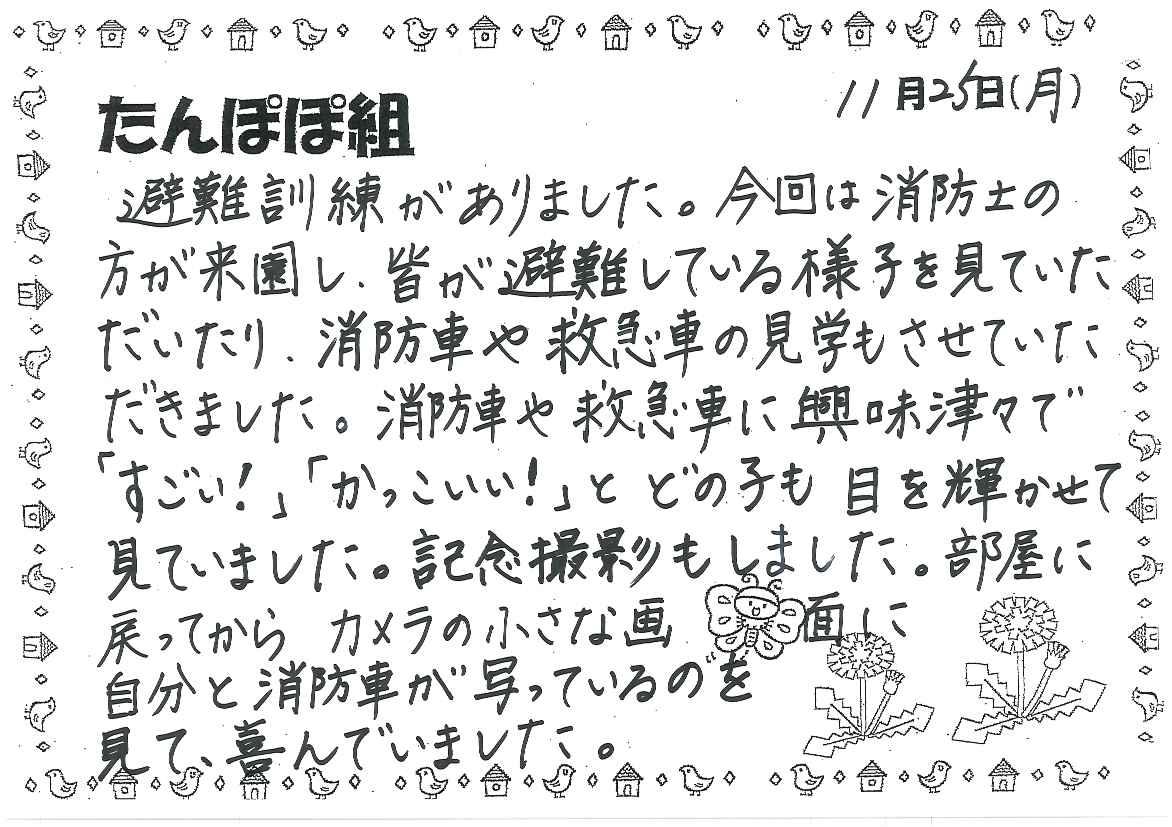 11月25日(月)
たんぽぽ組
避難訓練がありました。今回は消防士の
方が来園し、皆が避難している様子を見ていた
だいたり、消防車や救急車の見学もさせていた
だきました。消防車や救急車に興味津々で
「すごい!」「かっこいい!」と どの子も 目を輝かせて
見ていました。記念撮影もしました。部屋に
戻ってから カメラの小さな画面に
自分と消防車が写っているのを
見て、喜んでいました。